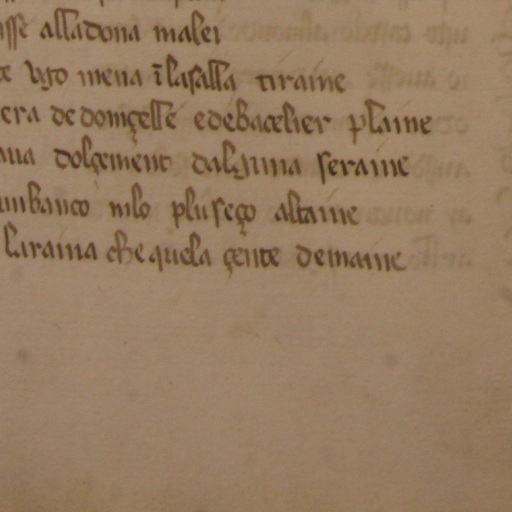 isse alladona malei
te Vgo mena ĩlasalla tiraine
era de donçelle edebacelier plaine
aua dolçement dalguna seraine
unbanco nilo pluseço altaine
laraina che quela çente demaine